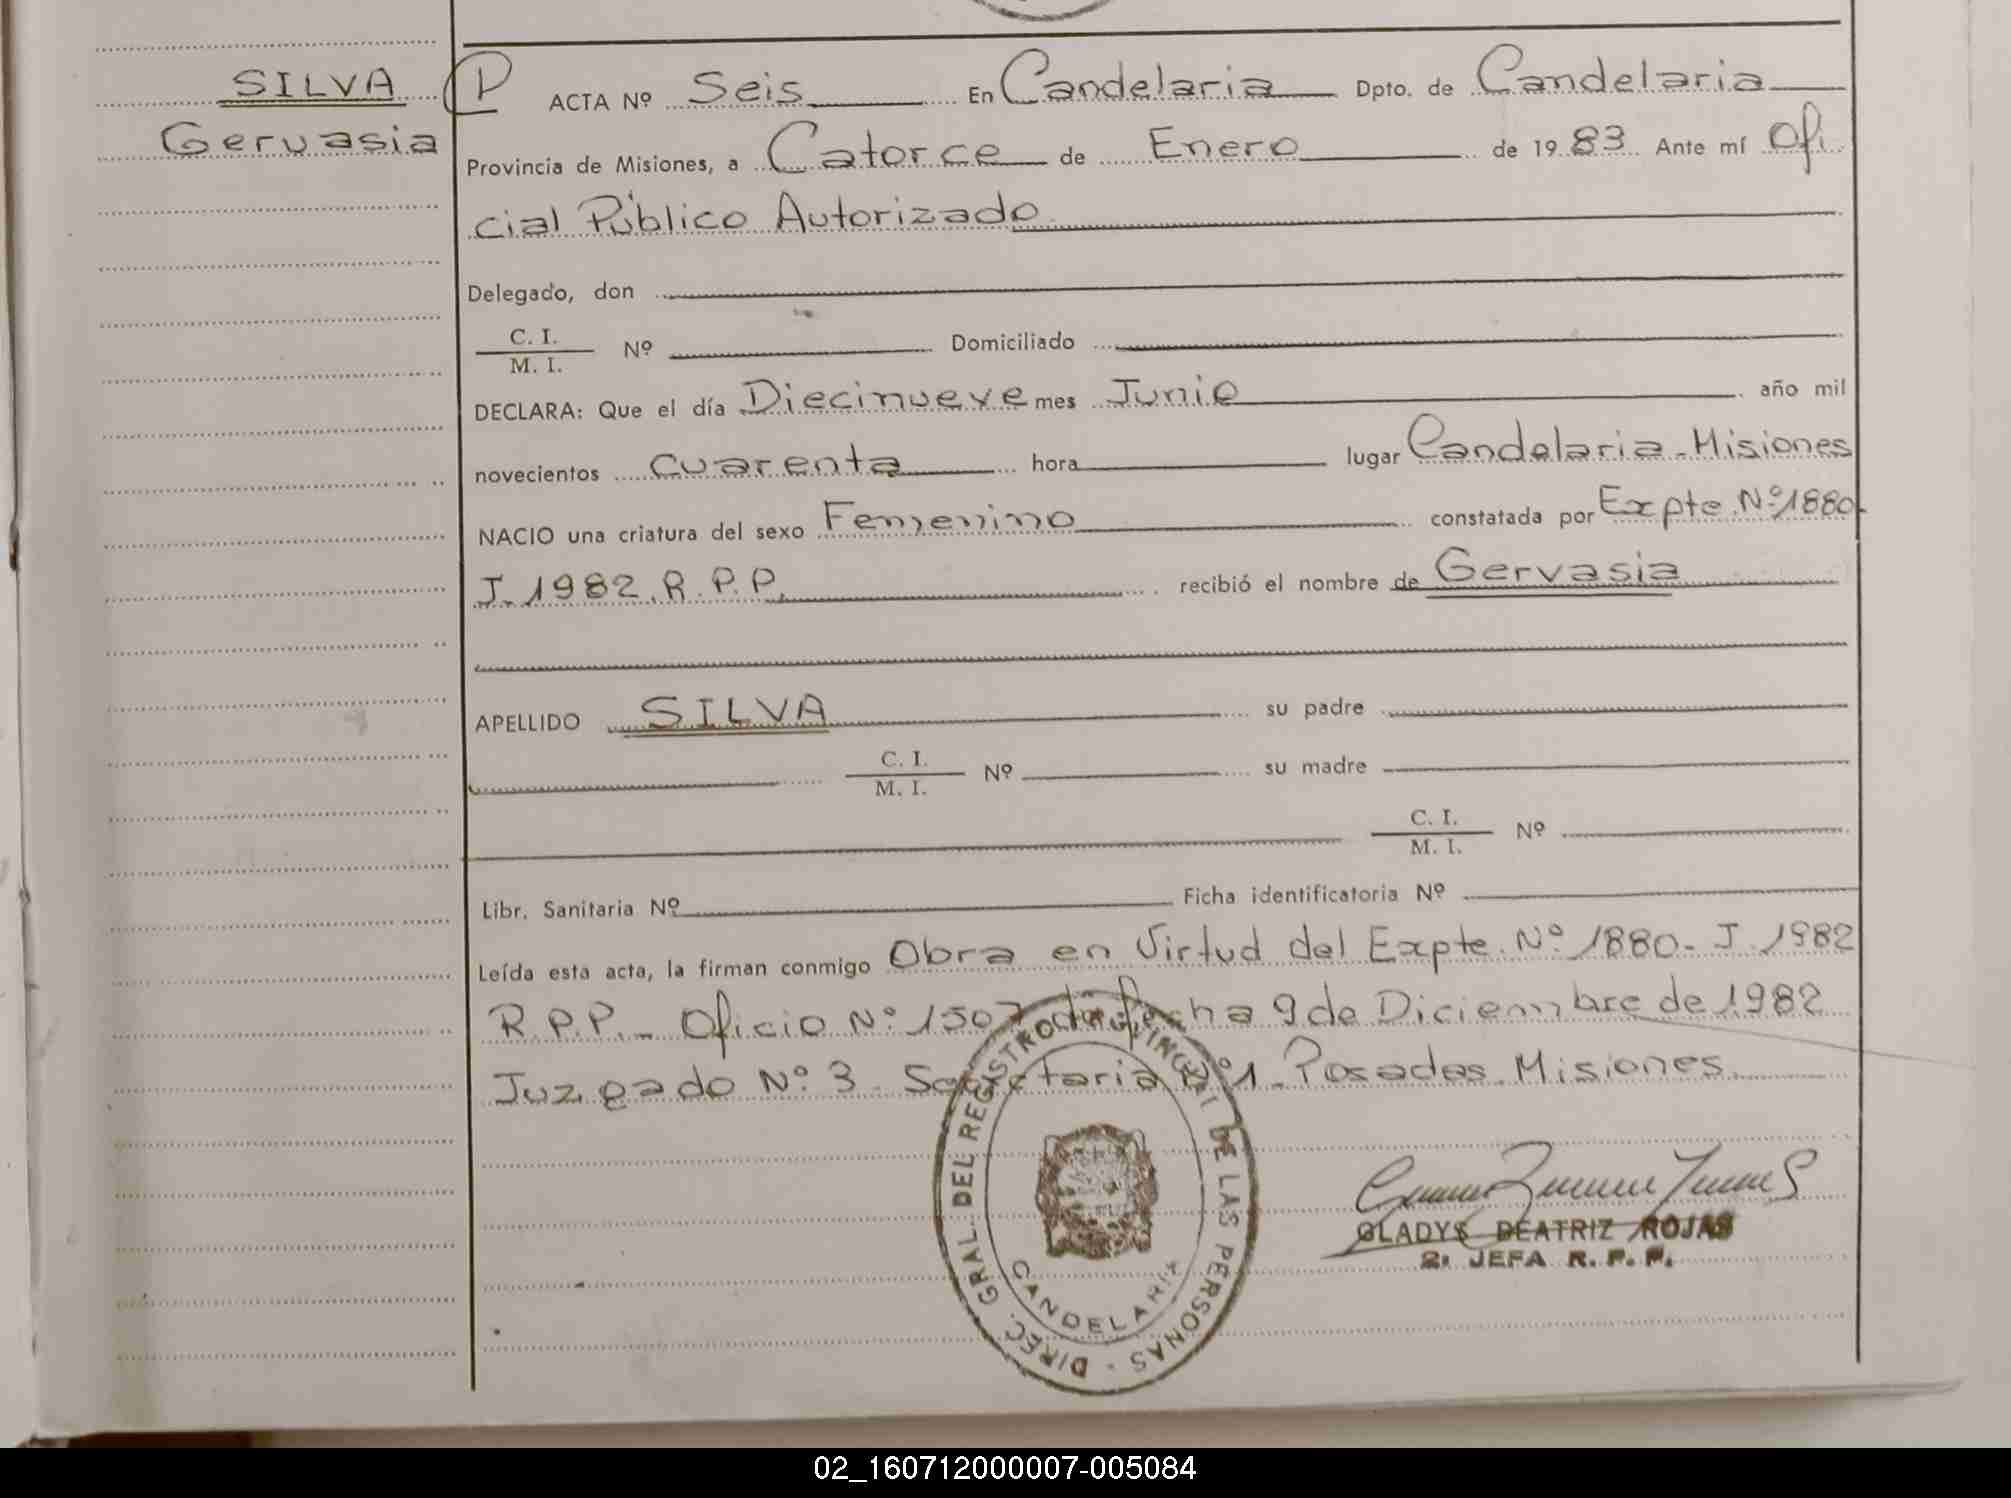 SILVA
Gervasia
P
ACTA Nº Seis En Candelaria Dpto. de Candelaria
Provincia de Misiones, a Catorce de Enero de 1983 Ante mí Ofi
cial Público Autorizado
Delegado, don
C. I.
M. I. Nº Domiciliado
DECLARA: Que el día Diecinueve mes Junio año mil
novecientos cuarenta hora lugar Candelaria-Misiones
NACIO una criatura del sexo Femenino constatada por Expte Nº1880-
J.1982.R.P.P. recibió el nombre de Gervasia
APELLIDO SILVA su padre
C. I.
M. I. Nº su madre
C. I.
M. I. Nº
Libr. Sanitaria Nº Ficha identificatoria Nº
Leída esta acta, la firman conmigo Obra en Virtud del Expte. Nº 1880-J.1982
R.P.P.- Oficio Nº 1507 de fecha 9 de Diciembre de 1982
Juzgado Nº 3. Secretaria Nº1-Posadas.Misiones.
DIREC. GRAL. DEL REGISTRO PROVINCIAL DE LAS PERSONAS -
CANDELARIA
GLADYS BEATRIZ ROJAS
2ª JEFA R. P. P.
02_160712000007-005084